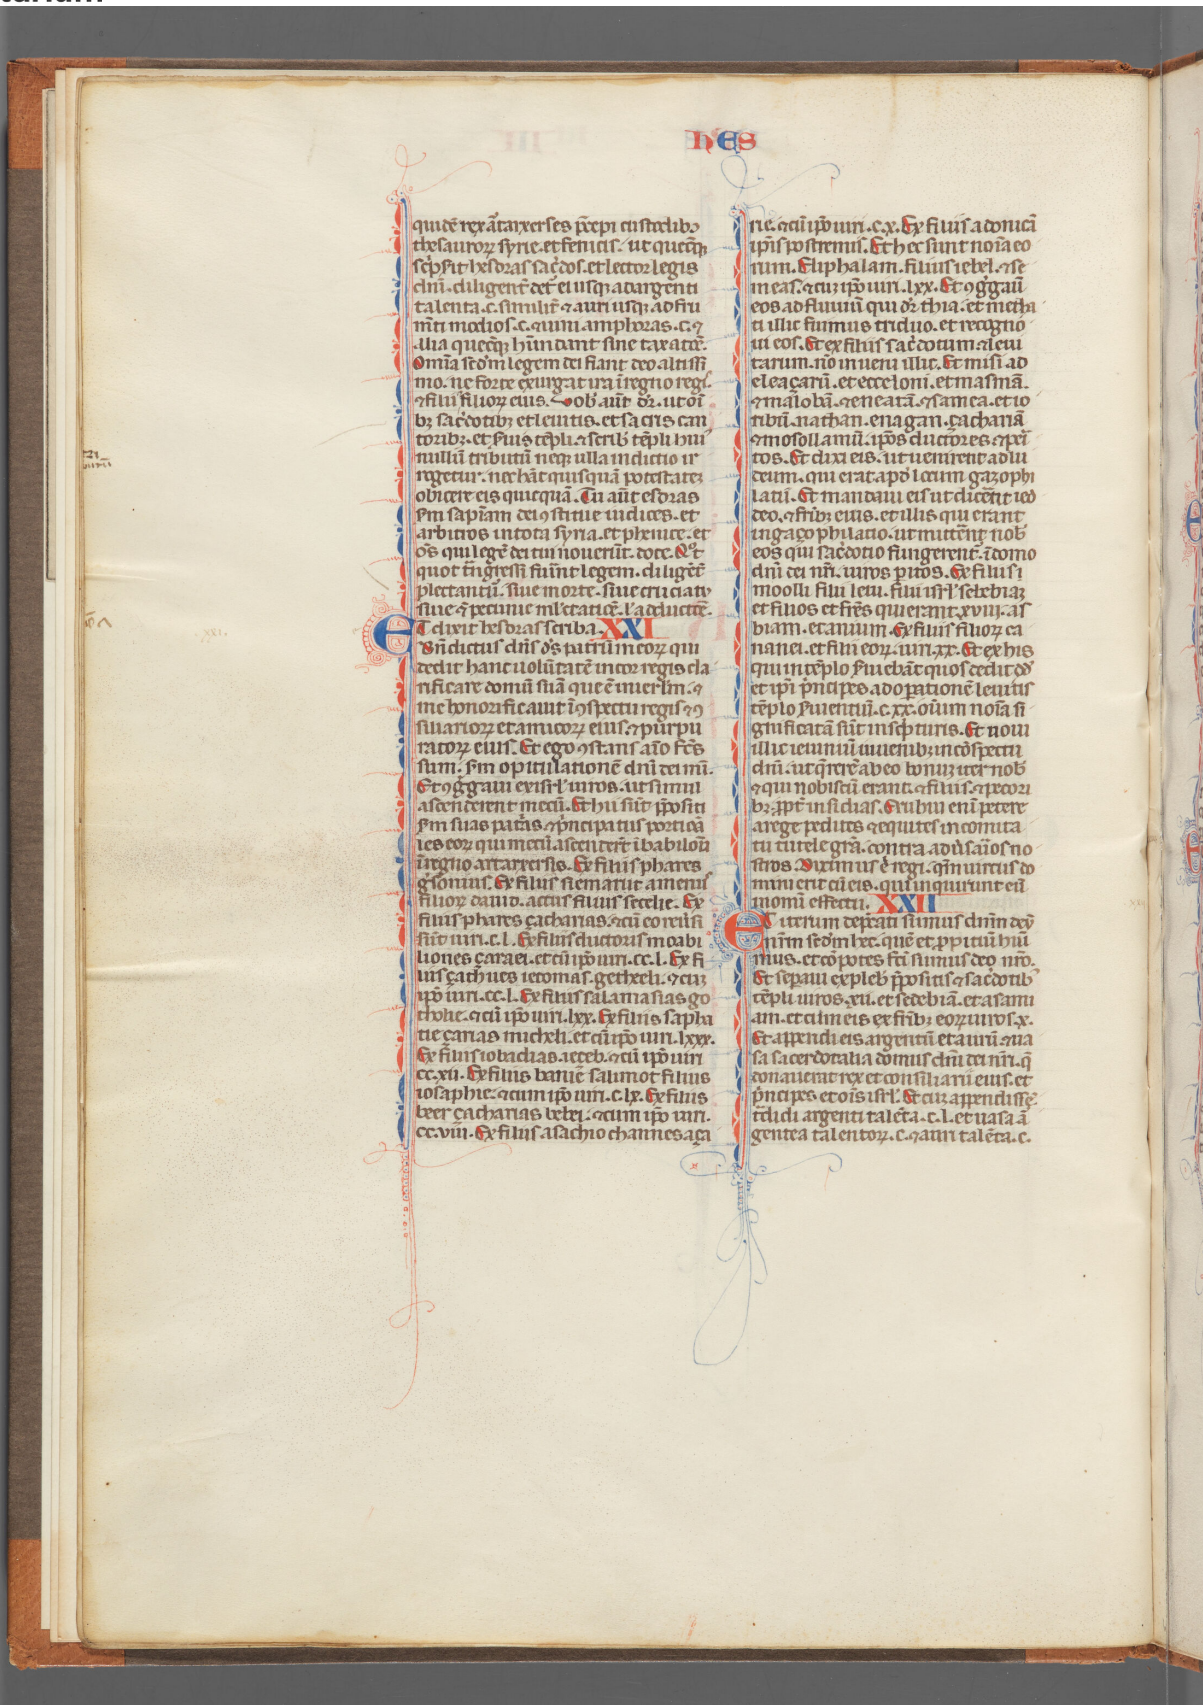 hES
quidē rex artarxerses p̄cepi custodibꝫ
thesauroꝝ syrie. et fenicis. ut quecūqꝫ
sc̄psit hesdras sac̄dos. et lector legis
dn̄i. diligent̄ det̄ ei usqꝫ ad argenti
talenta. c. similit̄ ⁊ auri usqꝫ ad fru
mēti modios. c. ⁊ uini amphoras. c. ⁊
alia quecūqꝫ hūndant sine taxatōe.
Omīa sc̄dm legem dei fiant deo altissi
mo. ne forte exurgat ira ī regno regis
⁊ filii filioꝝ eius. Uob̄ aūt dr̄. ut oī
bꝫ sac̄dotibꝫ et leuitis. et sacris can
toribꝫ. et s̄uis tēpli. ⁊ scrib̄ tēpli hui᾽
nullū tributū neqꝫ ulla indictio ir
rogetur. nec hāt quisquā potestatē
obicere eis quicquā. Tu aūt esdras
s̄m sapīam dei ꝯstitue iudices. et
arbitros in tota syria. et phenice. et
os̄ qui legē dei tui nouerūt. doce. Et
quot t̄ngressi fuīnt legem. diligēt̄
plectantū. siue morte. siue cruciatu
siue ⁊ pecunie ml̄tatiōe. l̄ adductōe.
ET dixit hesdras scriba. XXI
Bn̄dictus dn̄s ds̄ patrum eoꝝ qui
dedit hanc uolūtatē in cor regis cla
rificare domū suā que ē in ierl̄m. ⁊
me honorificauit ī ꝯspectu regis ⁊ ꝯ
siliarioꝝ et amicoꝝ eius. ⁊ purpu
ratoꝝ eius. Et ego ꝯstans aīo fc̄s
sum. s̄m opitulationē dn̄i dei mīi.
Et ꝯg̊gaui ex isr̄l uiros. ut simul
ascenderent mecū. Et hii sūt p̄positi
s̄m suas pat̄as. ⁊ p̄ncipatus portiōa
les eoꝝ qui mecū ascendert̄ ī babiloīa
ī regno artarxersis. Ex filiis phares
g̊sonius. Ex filiis siemarut amenus
filioꝝ dauid. actus filius secelie. Ex
filiis phares çacharias. ⁊ cū eo reūsi
sūt uiri. c. l. Ex filiis ductoris moabi
liones çaraei. et cū ip̄o uiri. cc. l. Ex fi
liis çach̄ues iecomas. gethxeli. ⁊ cuꝫ
ip̄o uiri. cc. l. Ex filiis salamasias go
tholie. ⁊ cū ip̄o uiri. lxx. Ex filiis sapha
tie çarias micheli. et cū ip̄o uiri. lxxx.
Ex filiis iobadias. ieceb. ⁊ cū ip̄o uiri
cc. xii. Ex filiis baniē salimot filius
iosaphie. ⁊ cum ip̄o uiri. c. lx. Ex filiis
beer çacharias bebei. ⁊ cum ip̄o uiri.
cc. viii. Ex filiis asachio channes aça
rie. ⁊ cū ip̄o uiri. c. x. Ex filiis adonicā
ip̄is postremis. Et hec sunt noīa eo
rum. Eliphalam. filius iebel. ⁊ se
meas. ⁊ cuꝫ ip̄o uiri. lxx. Et ꝯg̊gaui
eos ad fluuiū qui dr̄ thia. et metha
ti illic fuimus triduo. et recogno
ui eos. Et ex filiis sac̄dotum ⁊ leui
tarum. nō inueni illic. Et misi ad
eleaçarū. et ecceloni. et masmā.
⁊ māloban. ⁊ enearā. ⁊ samea. et io
ribū. nathan. enagan. çachariā
⁊ mosollamū. ip̄os ductores. ⁊ p̄ei
tos. Et dixi eis. ut uenirent ad lu
deum. qui erat apd̄ loeum gaçophi
latii. Et mandaui eis ut dicērt ieddo
deo. ⁊ frībꝫ eius. et illis qui erant
in gaçophilatio. ut mittērt nob̄
eos qui sac̄dotio fungerent̄. ī domo
dn̄i dei nr̄i. uiros p̄itos. Ex filiis ⁊
moolli filii leui. filii isr̄l sebebiaꝫ
et filios et fr̄es qui erant. xviii. as
biam. et anium. Ex filiis filioꝝ ca
nanei. et filii eoꝝ. uiri. xx. Et ex his
qui in tēplo s̄uiebāt quos dedit dd̄
et ip̄i p̄ncipes ad oꝑationē leuitis
tēplo s̄uientiū. c. xx. oīum noīa si
gnificatā sūt in sc̄pturis. Et noui
illic ieiuniū iuuenibꝫ in cōspectu
dn̄i. ut q̄rerē ab eo bonuꝫ iter nob̄
⁊ qui nobiscū erant. ⁊ filiis. ⁊ pecori
bꝫ. ꝓpt̄ insidias. Erubui enī petere
a rege pedites ⁊ equites in comita
tu tutele gr̄a. contra adūsaīos no
stros. Diximus ē regi. qm̄ uirtus do
mini erit cū eis. qui inquirunt eū
in omī effectu. XXII
ET iterum dep̄cati sumus dn̄m deū
nr̄m sc̄dm hec. quē et ꝓpitiū hui
mus. et cōpotes fc̄i sumus deo nr̄o.
Et sepaui ex pleb̄ p̄positis ⁊ sac̄dotib̄
tēpli uiros. xii. et sedebiā. et asami
am. et cū eis ex frībꝫ eoꝝ uiros. x.
Et appendi eis argentū et aurū ⁊ ua
sa sacerdotalia domus dn̄i dei nr̄i. q̄
donauerat rex et consiliarii eius. et
p̄ncipes et oīs isr̄l. Et cuꝫ appendissē
t̄didi argenti talēta. c. l. et uasa ar
gentea talentoꝝ. c. ⁊ auri talēta. c.